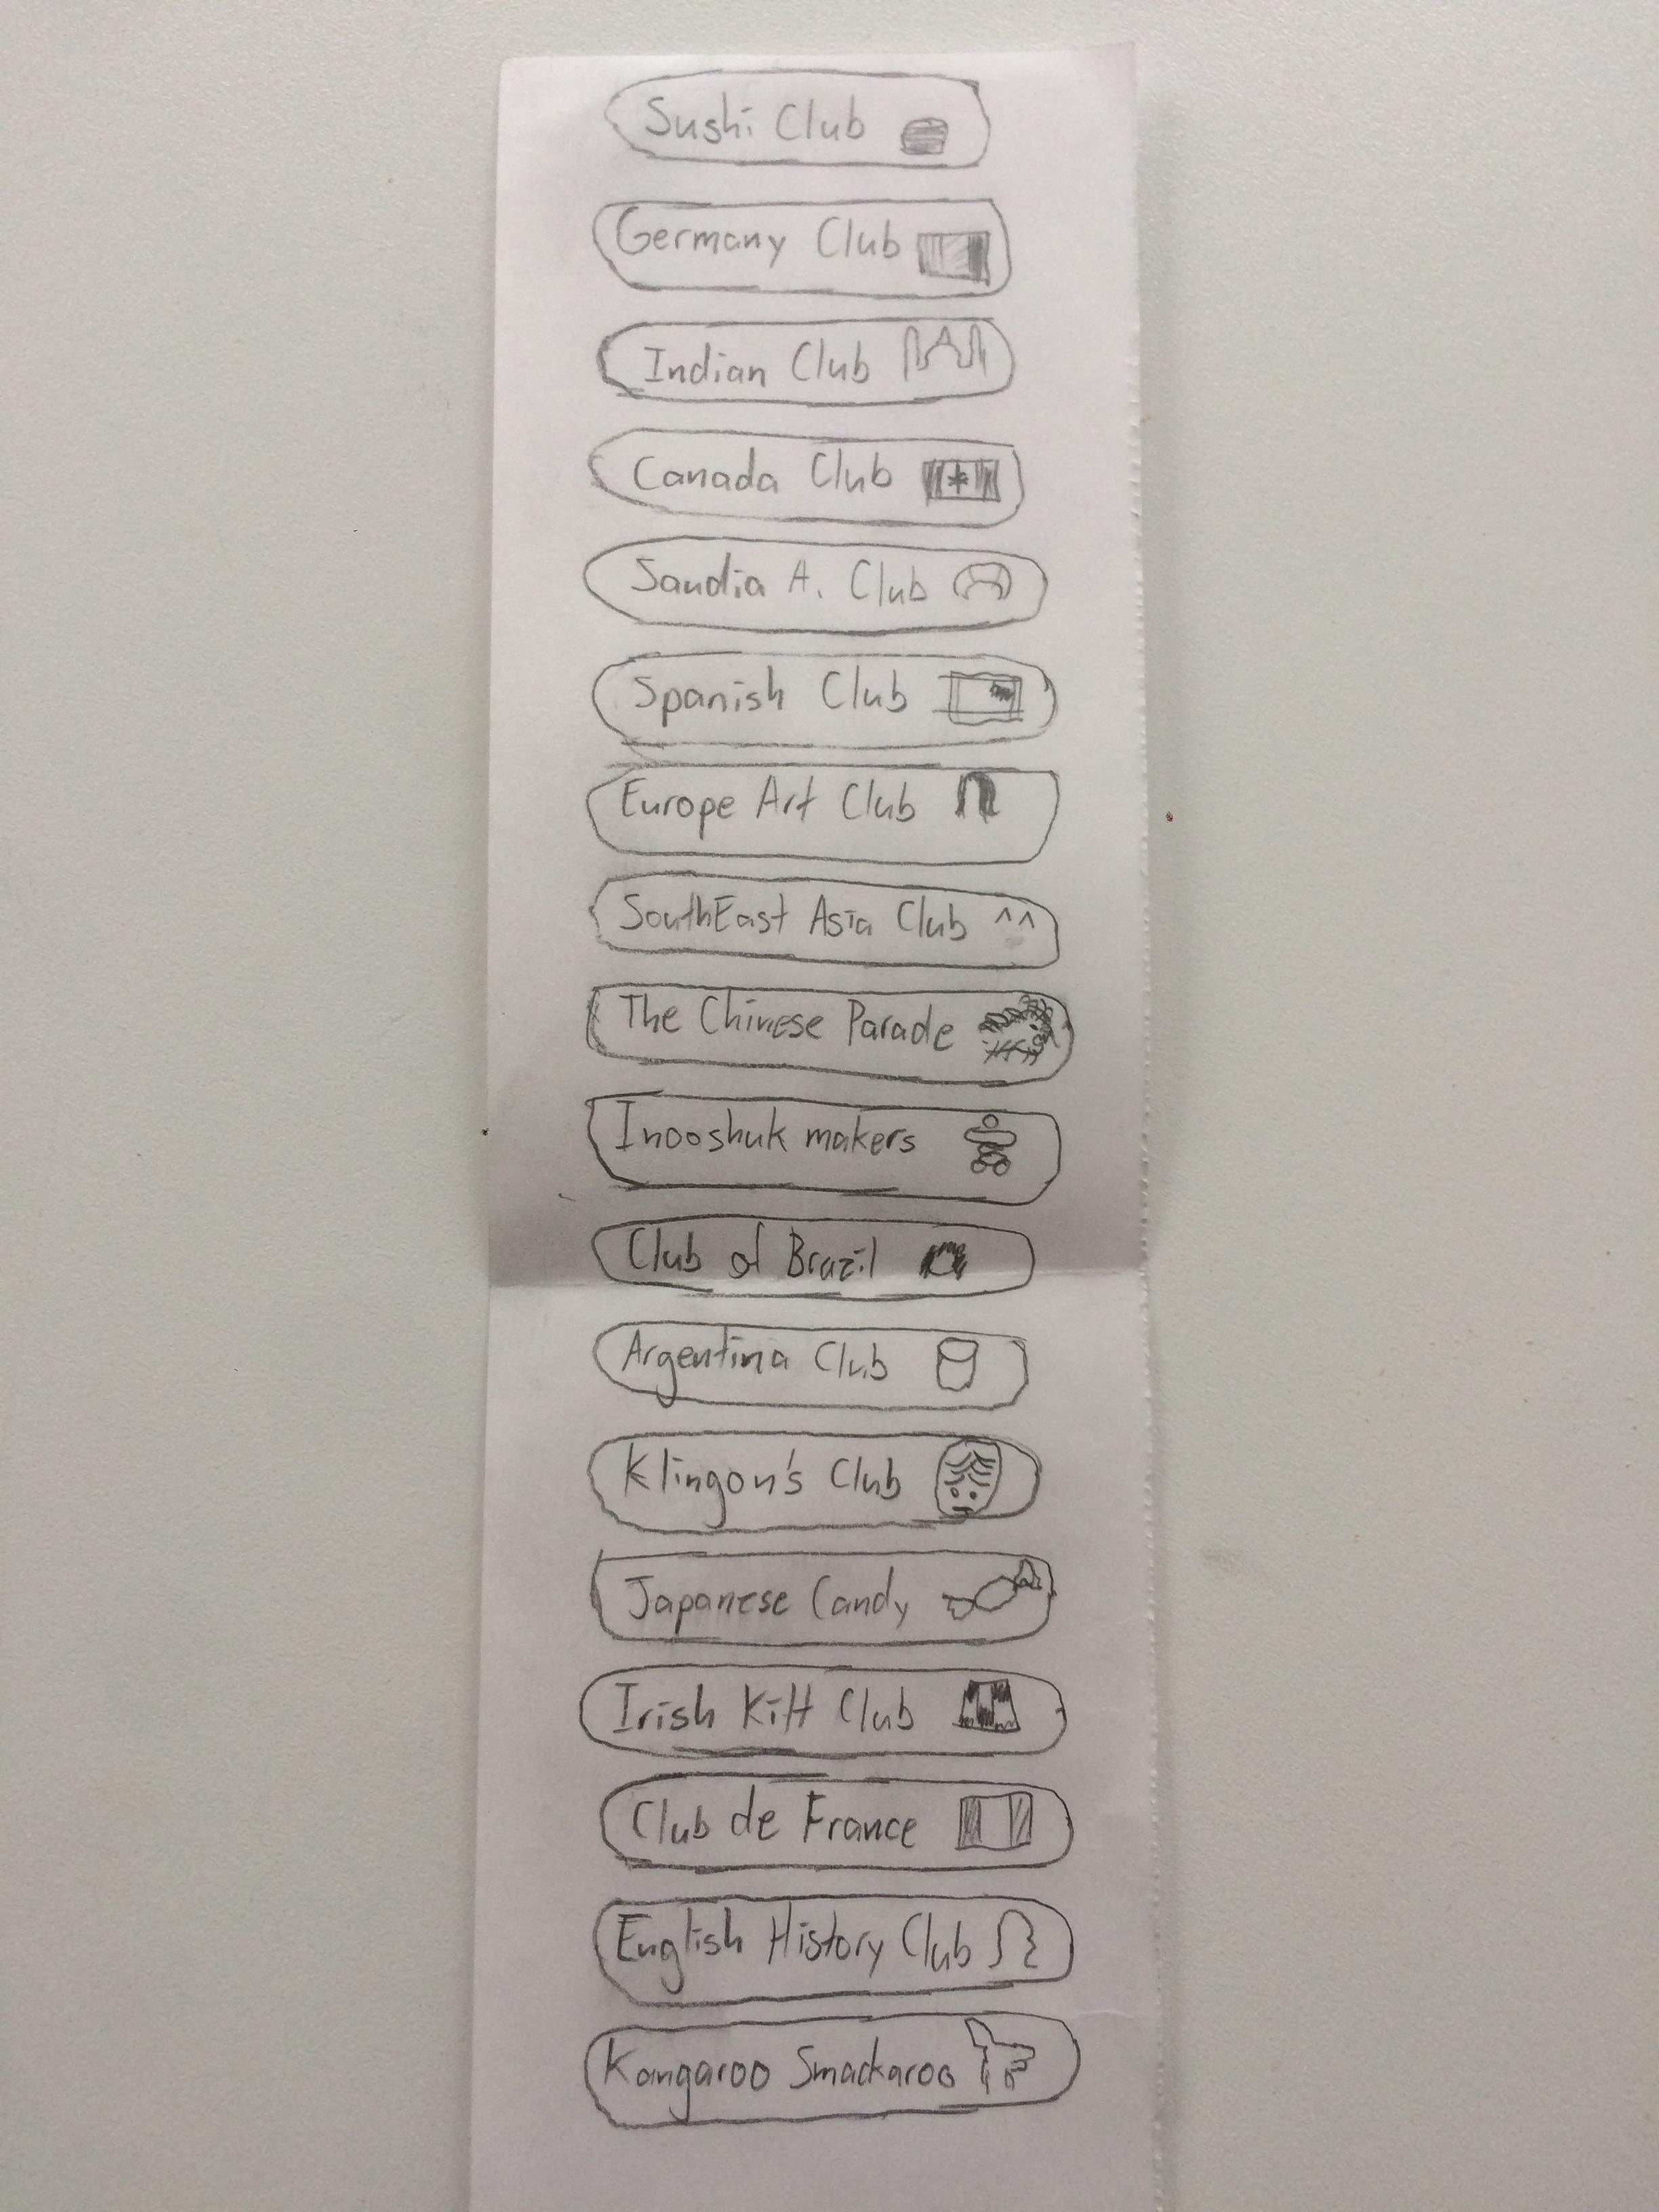 Sushi Club
Germany Club
Indian Club
Canada Club
Saudia A. Club
Spanish Club
Europe Art Club
SouthEast Asia Club ^^
The Chinese Parade
Inooshuk makers
Club of Brazil
Argentina Club
Klingon's Club
Japanese Candy
Irish Kilt Club
Club de France
English History Club
Kangaroo Smackaroo